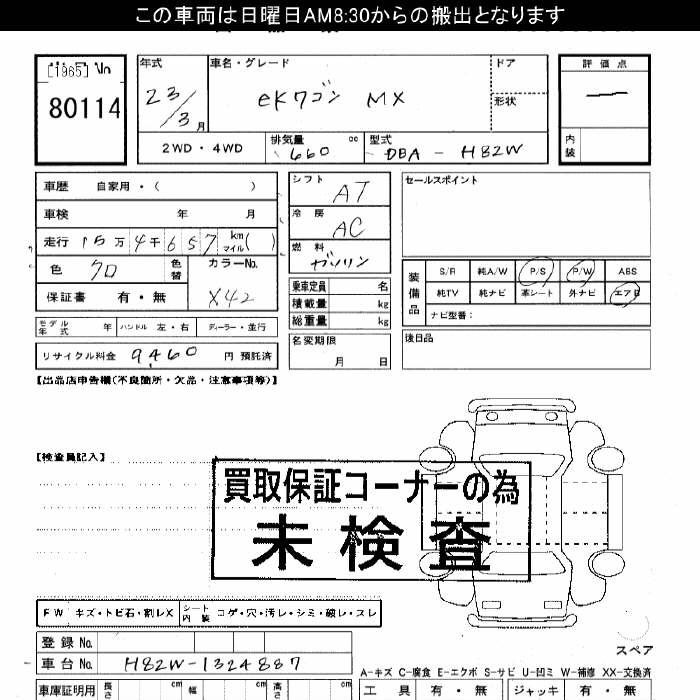 この車両は日曜日AM8:30からの搬出となります
[1965] No
80114
年式
23/3月
車名・グレード
eKワゴン MX
ドア
形状
評価点
内装
2WD・4WD
排気量 660 cc
型式 DBA - H82W
車歴 自家用・( )
車検 年 月
走行 15万4千657 km マイル( )
色 クロ 色替
カラーNo. X42
保証書 有・無
モデル年式 年 ハンドル 左・右 ディーラー・並行
リサイクル料金 9,460 円 預託済
シフト AT
冷房 AC
燃料 ガソリン
乗車定員 名
積載量 kg
総重量 kg
名変期限 月 日
セールスポイント
装備品
S/R 純A/W P/S P/W ABS
純TV 純ナビ 革シート 外ナビ エアB
ナビ型番:
後日品
【出品店申告欄(不良箇所・欠品・注意事項等)】
【検査員記入】
買取保証コーナーの為
未検査
FW キズ・トビ石・割レX シート内装 コゲ・穴・汚レ・シミ・破レ・スレ
登録No.
車台No. H82W-1324887
車庫証明用 長さ cm 幅 cm 高さ cm
スペア
A-キズ C-腐食 E-エクボ S-サビ U-凹ミ W-補修 XX-交換済
工具 有・無 ジャッキ 有・無